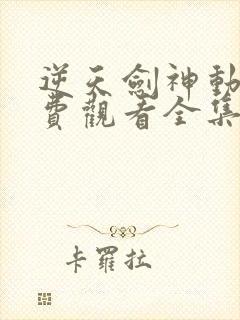 逆天劍神動
費觀看全集
卡羅拉